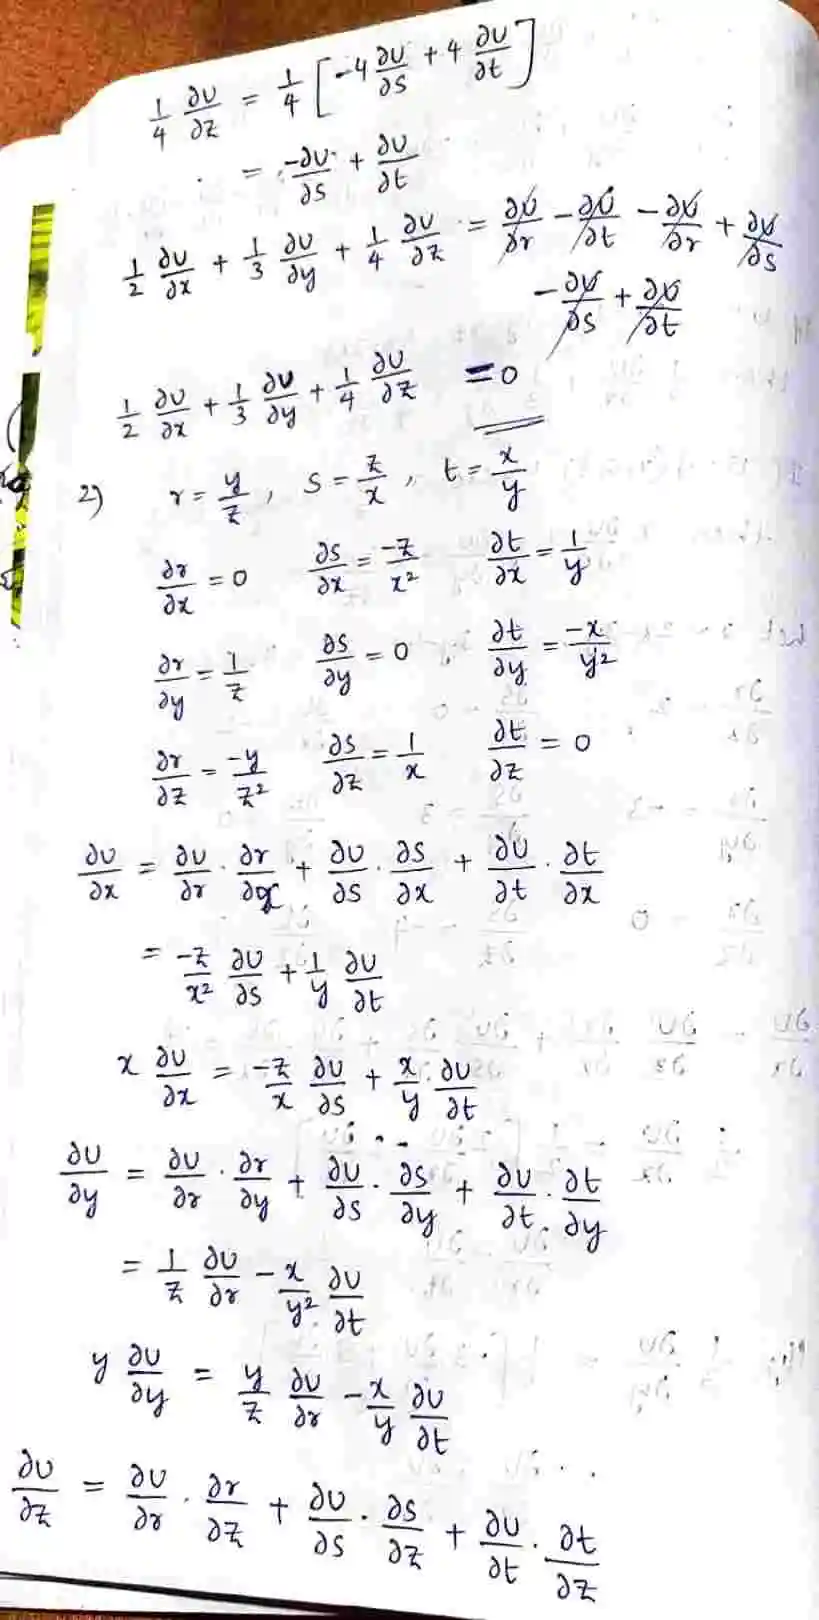 1/4 ∂u/∂z = 1/4 [-4 ∂u/∂s + 4 ∂u/∂t]
= -∂u/∂s + ∂u/∂t
1/2 ∂u/∂x + 1/3 ∂u/∂y + 1/4 ∂u/∂z = ∂u/∂r - ∂u/∂t - ∂u/∂r + ∂u/∂s
- ∂u/∂s + ∂u/∂t
1/2 ∂u/∂x + 1/3 ∂u/∂y + 1/4 ∂u/∂z = 0
2) r = y/z , s = z/x , t = x/y
∂r/∂x = 0 ∂s/∂x = -z/x² ∂t/∂x = 1/y
∂r/∂y = 1/z ∂s/∂y = 0 ∂t/∂y = -x/y²
∂r/∂z = -y/z² ∂s/∂z = 1/x ∂t/∂z = 0
∂u/∂x = ∂u/∂r · ∂r/∂x + ∂u/∂s · ∂s/∂x + ∂u/∂t · ∂t/∂x
= -z/x² ∂u/∂s + 1/y ∂u/∂t
x ∂u/∂x = -z/x ∂u/∂s + x/y ∂u/∂t
∂u/∂y = ∂u/∂r · ∂r/∂y + ∂u/∂s · ∂s/∂y + ∂u/∂t · ∂t/∂y
= 1/z ∂u/∂r - x/y² ∂u/∂t
y ∂u/∂y = y/z ∂u/∂r - x/y ∂u/∂t
∂u/∂z = ∂u/∂r · ∂r/∂z + ∂u/∂s · ∂s/∂z + ∂u/∂t · ∂t/∂z